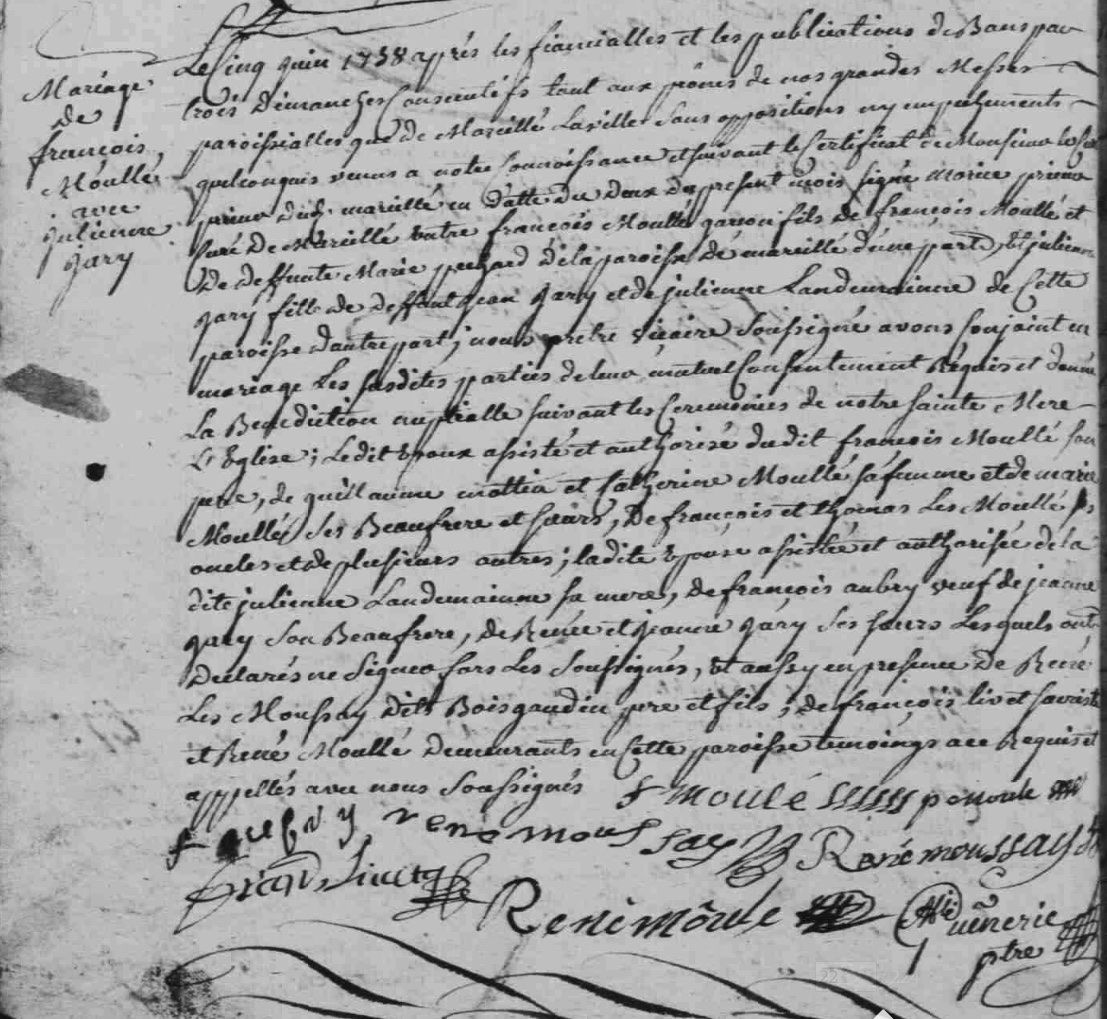 Mariage
de
françois
Moullé
avec
julienne
Jary
Le Cinq Juin 1738 après les fiancialles et les publications de Bans par
trois dimanches Consecutifs tant aux prônes de nos grandes Messes
paroissialles que de Marcillé Laville sans oppositions ny empechements
quelconques venus a notre Connoissance et suivant le Certificat de Monsieur le
prieur de marcillé en datte du deux du present mois signé prieur
Curé de Marcillé entre françois Moullé garçon fils de françois Moullé et
de deffunte Marie de la paroisse de marcillé d'une part, Et julienne
Jary fille de deffunt Jean Jary et de julienne Landemainne de Cette
paroisse d'autre part ; nous prêtre vicaire Soussigné avons Conjoint en
mariage Les susdites parties de leur mutuel Consentement Requis et donné
La Benediction nuptialle suivant les Ceremonies de notre sainte Mere
L'Eglise ; Ledit Epoux assisté et authorisé du dit françois Moullé son
pere, de guillaume mottier et Catherine Moullé sa femme et de marie
Moullé Ses Beaufrere et sœurs, De françois et thomas Les Moullé ses
oncles et de plusieurs autres ; ladite Epouse assistée et authorisée de la
dite julienne Landemainne sa mere, de françois aubry veuf de jeanne
Jary Son Beaufrere, de Renée et Jeanne Jary Ses sœurs Lesquels ont
Declarés ne Signer fors Les Soussignés, Et aussy en presence de René
Les Moussay dits Boisgaudin pere et fils ; de françois
et René Moullé demeurants en Cette paroisse temoings a ce Requis et
appellés avec nous Soussignés f moulé
f aubry rene moussay René moussay
René môulé
ptre